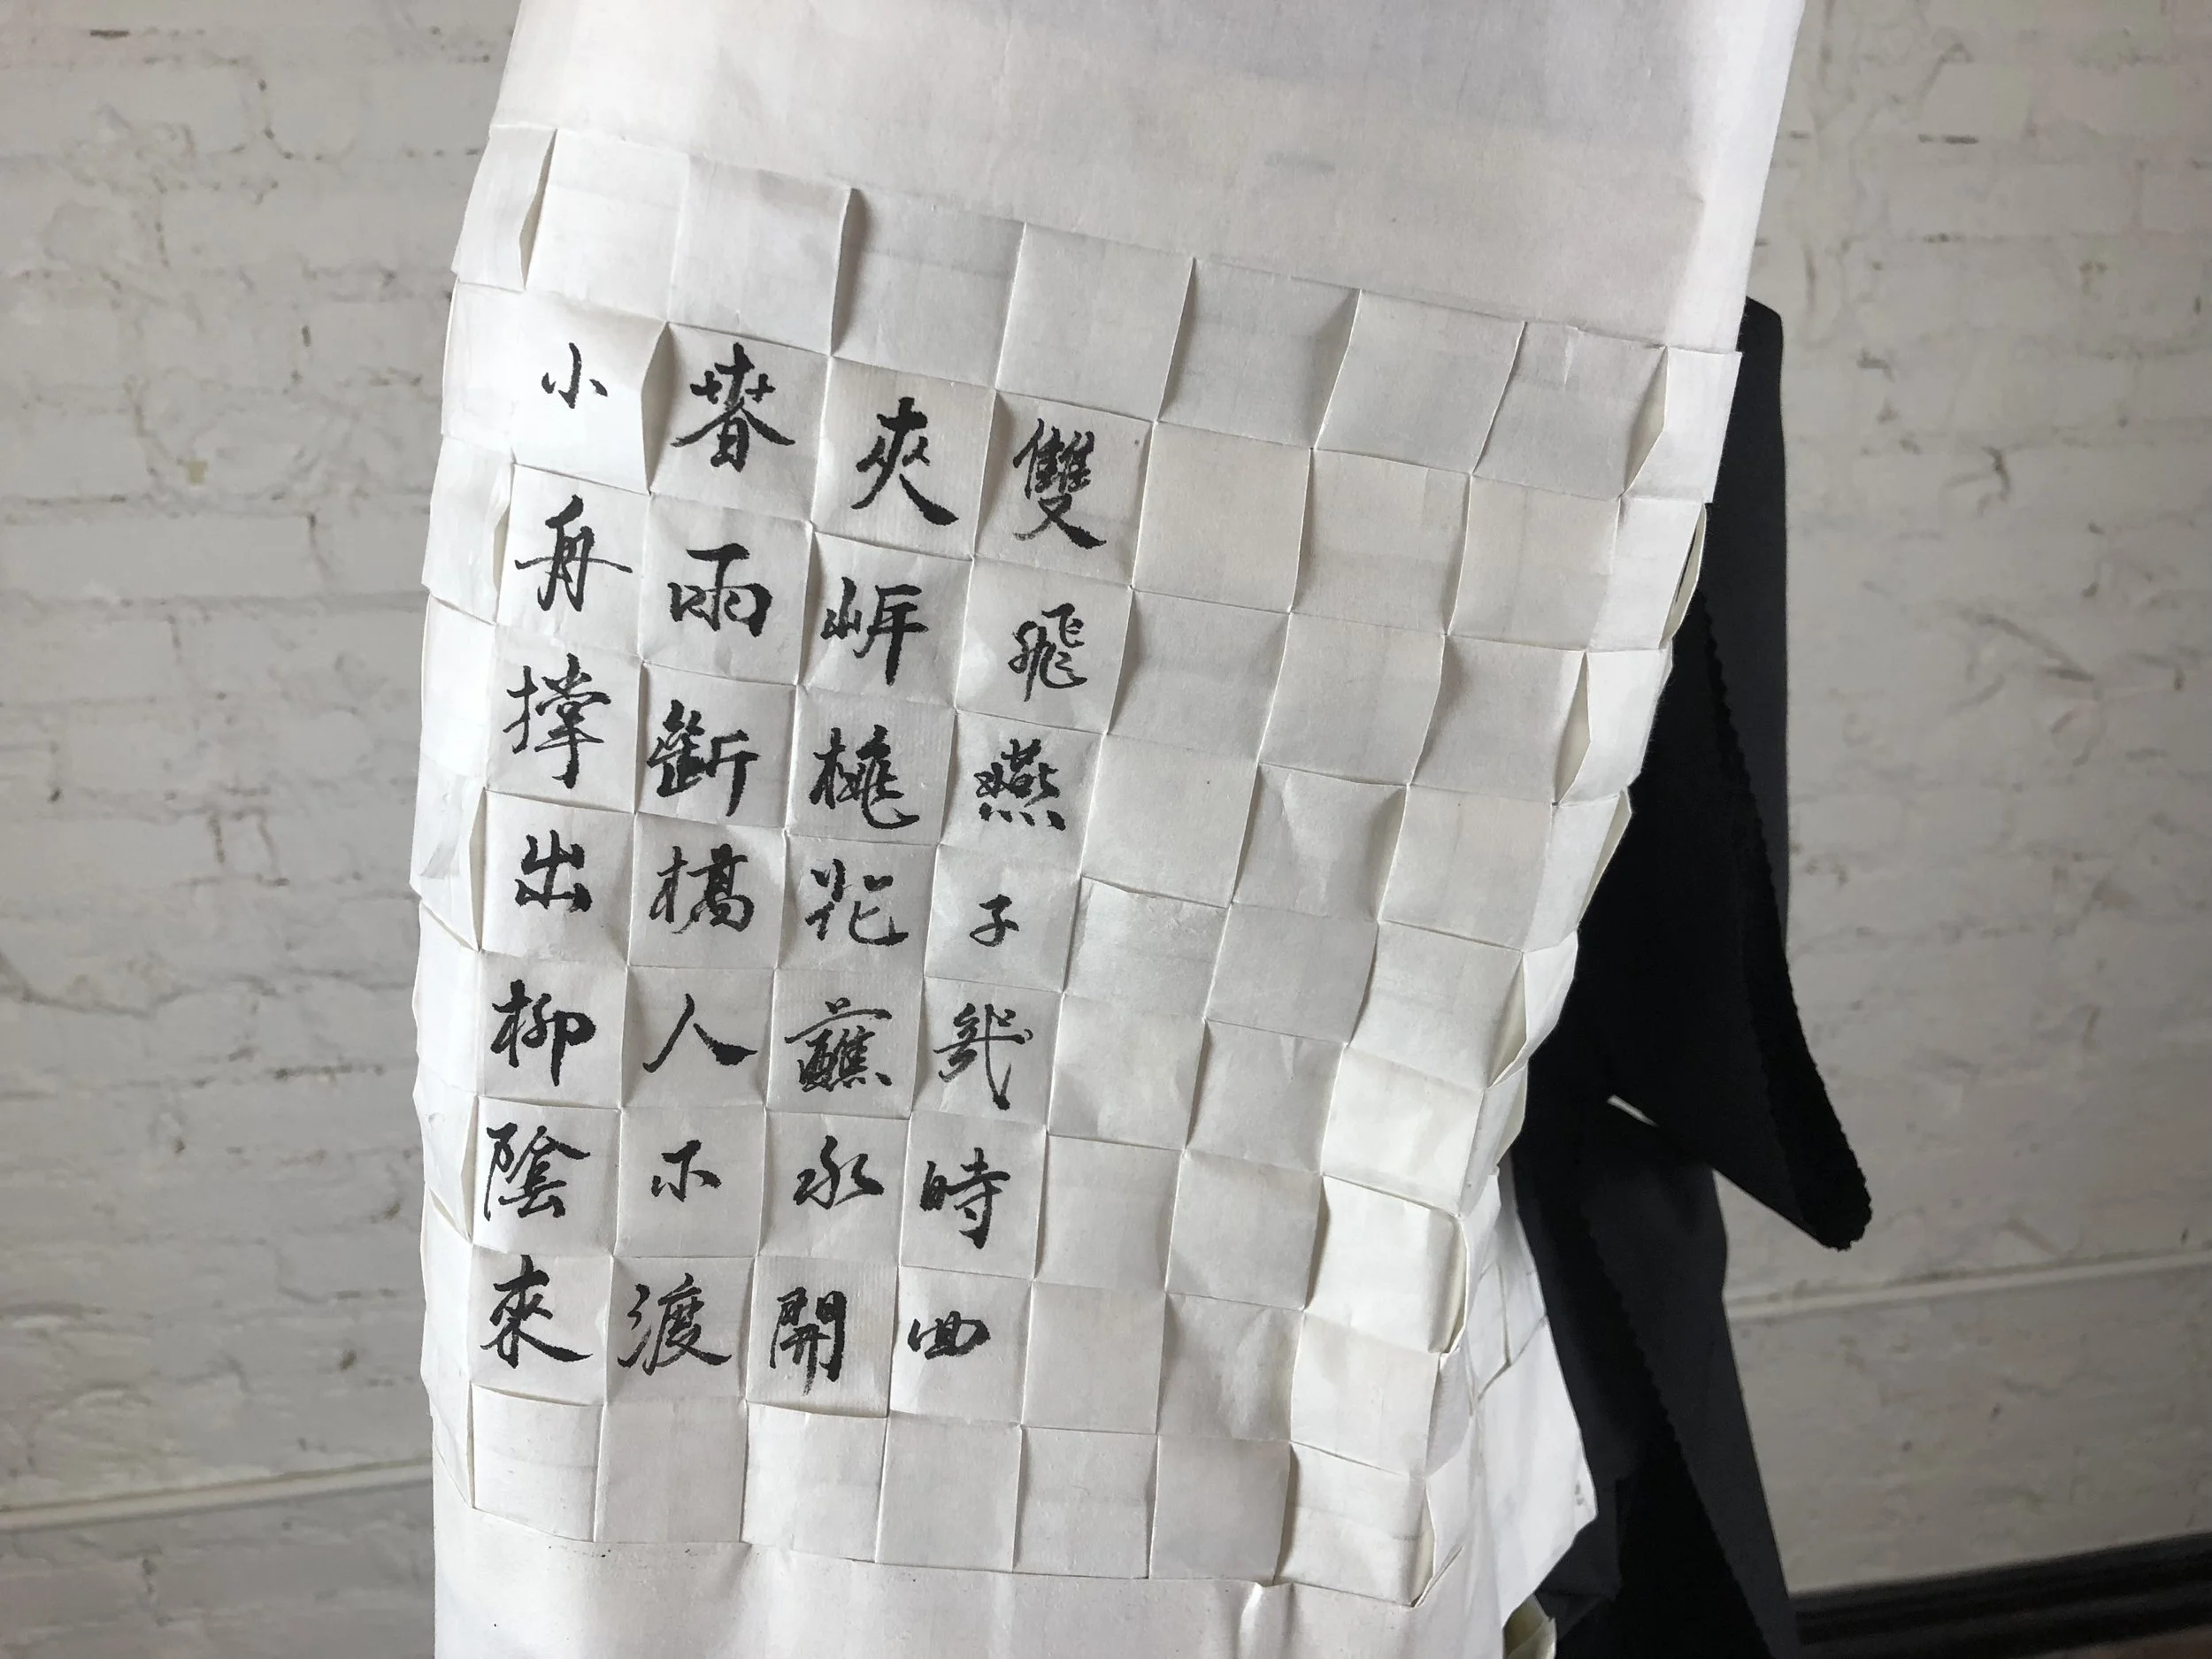 雙飛燕子幾時回
夾岸桃花蘸水開
春雨斷橋人不渡
小舟撐出柳陰來